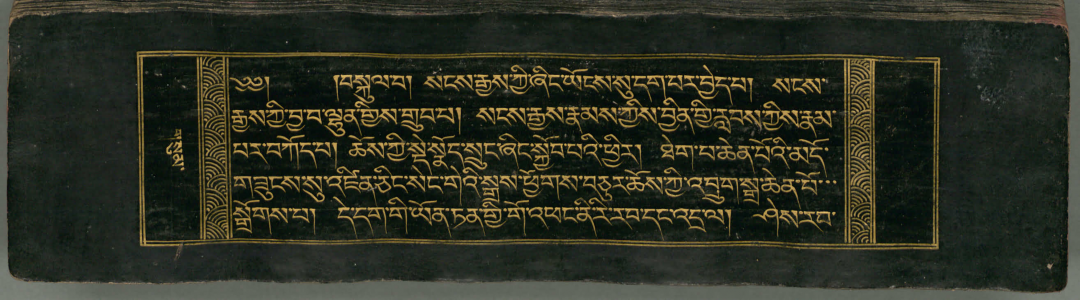 གསུམ་
༄༅། །བསྐུལ་བ། སངས་རྒྱས་ཀྱི་ཞིང་ཡོངས་སུ་དག་པར་བྱེད་པ། སངས་
རྒྱས་ཀྱི་བྱ་བ་ལྷུན་གྱིས་གྲུབ་པ། སངས་རྒྱས་རྣམས་ཀྱིས་བྱིན་གྱི་རླབས་ཀྱིས་རྣམ་
པར་བཀོད་པ། ཆོས་ཀྱི་སྡེ་སྣོད་སྲུང་ཞིང་སྐྱོབ་པའི་ཕྱིར། ཐེག་པ་ཆེན་པོའི་མདོ་
གཟུངས་སུ་འཛིན་ཅིང་སེང་གེའི་སྒྲས་ཕྱོགས་བཅུར་ཆོས་ཀྱི་འབྲུག་སྒྲ་ཆེན་པོ་
སྒྲོགས་པ། དེ་དག་གི་ཡོན་ཏན་གྱི་གོ་འཕང་ནི་རི་རབ་དང་འདྲ་ལ། ཤེས་རབ་